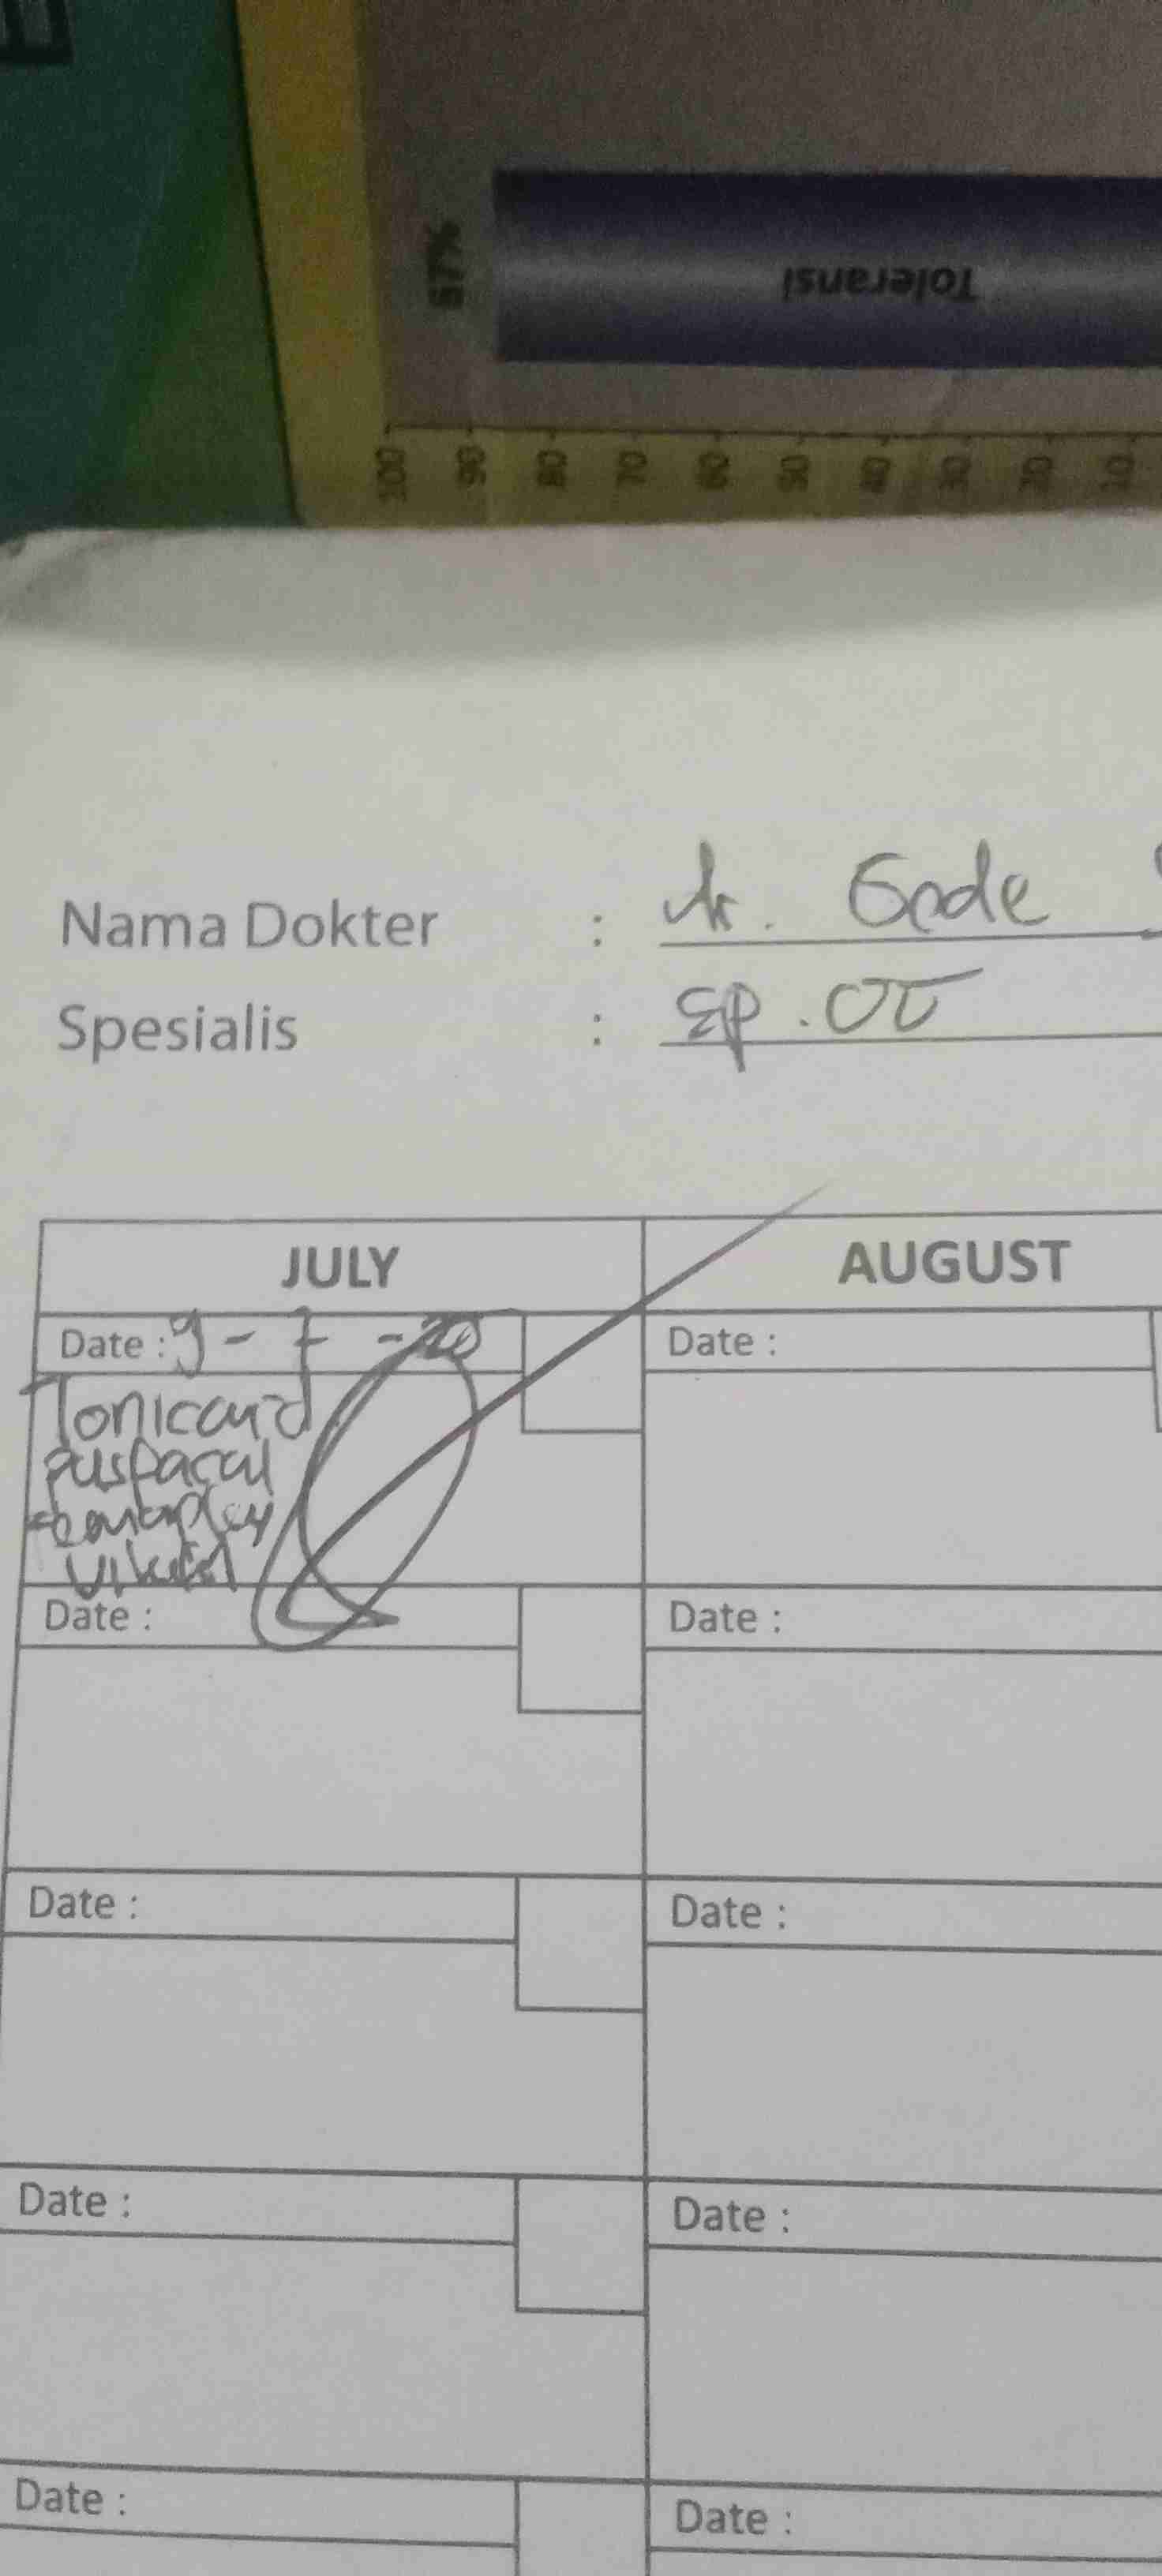 Toleransi
100 90 80 70 60 50 40 30 20 10
Nama Dokter : dr. Gede
Spesialis : Sp. OT
JULY AUGUST
Date : 9 - 7 - 20 Date :
Tonicard
Date : Date :
Date : Date :
Date : Date :
Date : Date :